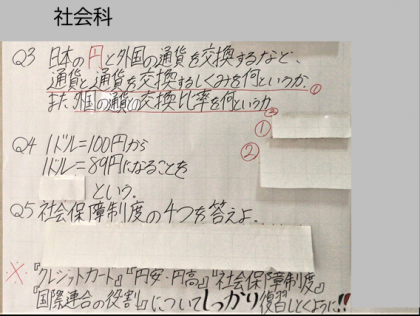 社会科
Q3 日本の円と外国の通貨を交換するなど、
通貨と通貨を交換するしくみを何というか。①
また、外国の通貨の交換比率を何というか②
①
Q4 1ドル=100円から
②
1ドル=89円になることを
という。
Q5 社会保障制度の4つを答えよ。
※『クレジットカード』『円安・円高』『社会保障制度』
『国際連合の役割』についてしっかり復習しとくように!!